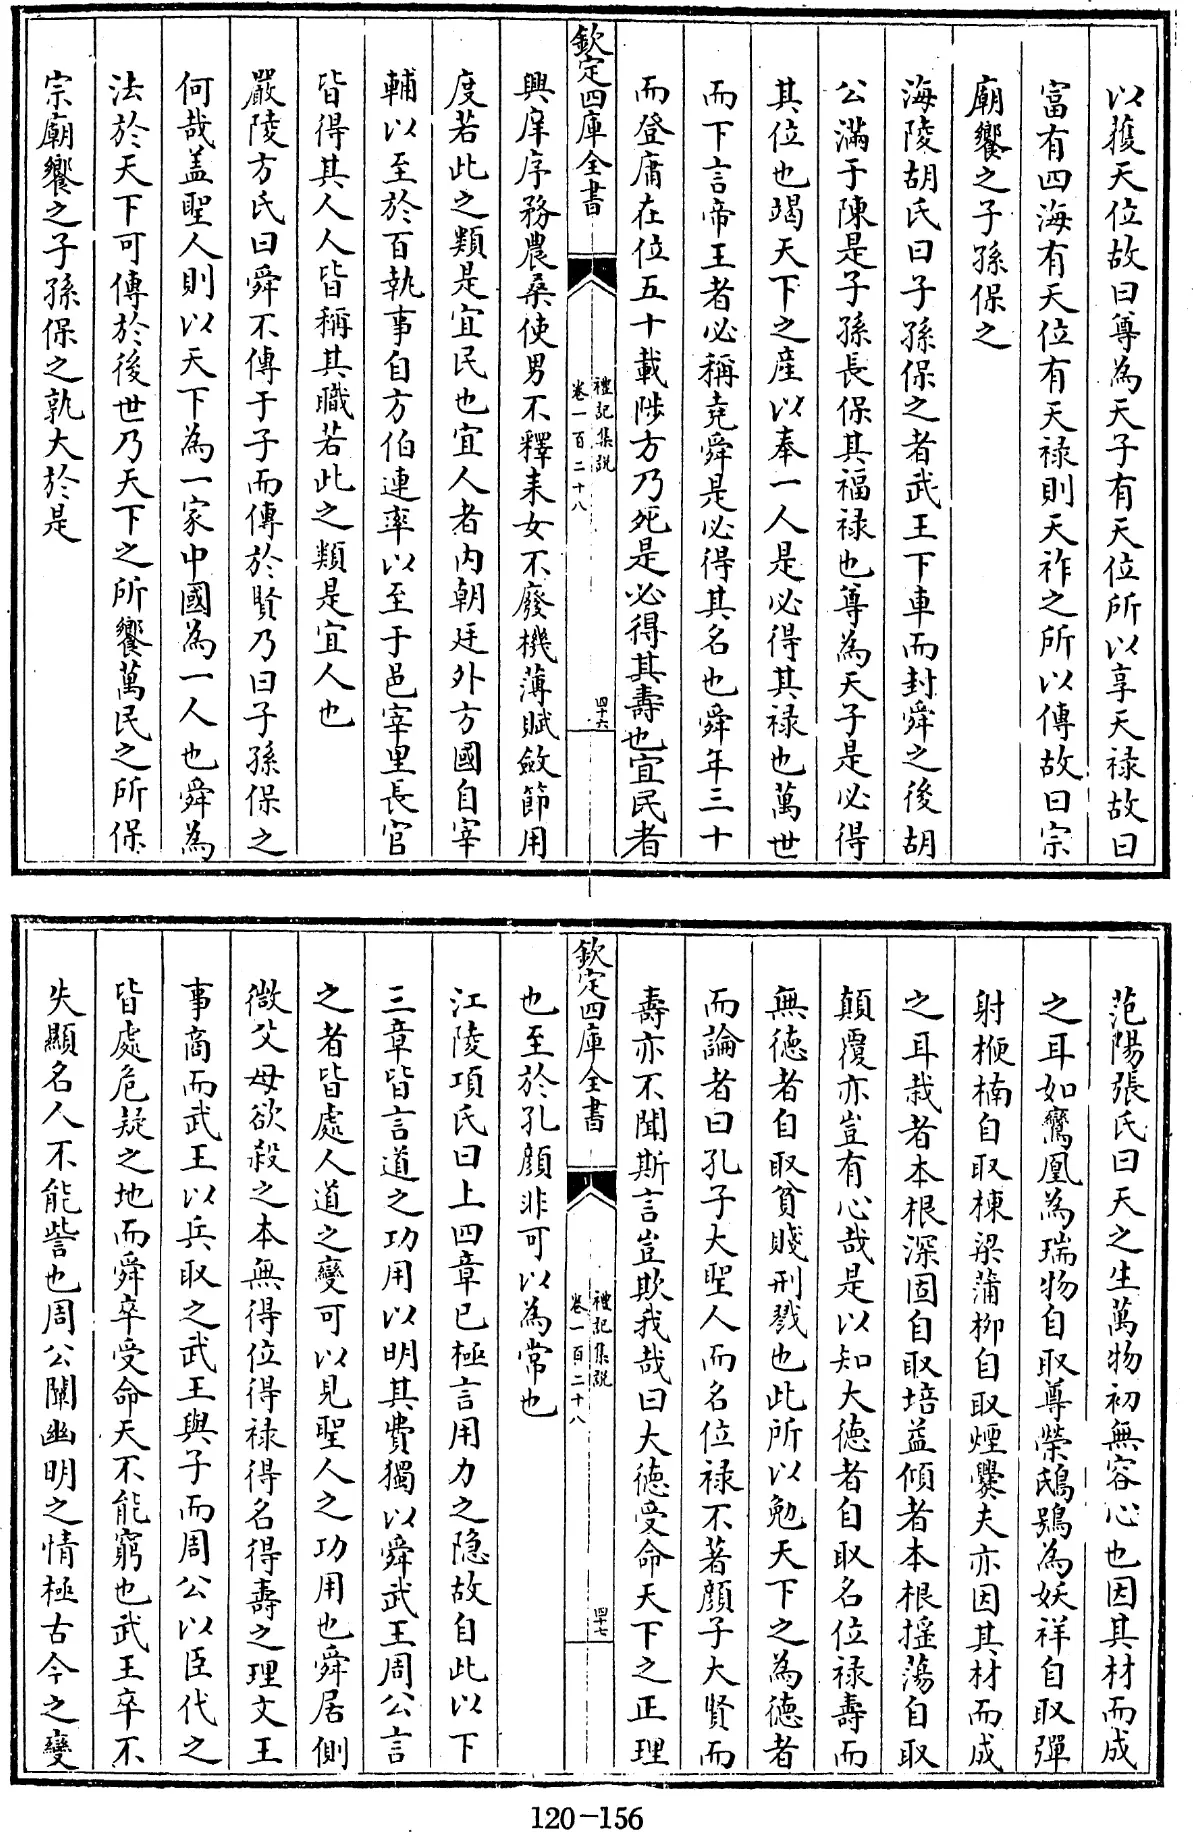 以獲天位故曰尊為天子有天位所以享天禄故曰
富有四海有天位有天禄則天祚之所以傳故曰宗
廟饗之子孫保之
海陵胡氏曰子孫保之者武王下車而封舜之後胡
公滿于陳是子孫長保其福禄也尊為天子是必得
其位也竭天下之産以奉一人是必得其禄也萬世
而下言帝王者必稱堯舜是必得其名也舜年三十
而登庸在位五十載陟方乃死是必得其壽也宜民者
欽定四庫全書
禮記集説
卷一百二十八
四十六
興庠序務農桑使男不釋耒女不廢機薄賦斂節用
度若此之類是宜民也宜人者内朝廷外方國自宰
輔以至於百執事自方伯連率以至于邑宰里長官
皆得其人人皆稱其職若此之類是宜人也
嚴陵方氏曰舜不傳于子而傳於賢乃曰子孫保之
何哉盖聖人則以天下為一家中國為一人也舜為
法於天下可傳於後世乃天下之所饗萬民之所保
宗廟饗之子孫保之孰大於是
范陽張氏曰天之生萬物初無容心也因其材而成
之耳如鸞凰為瑞物自取尊榮鴟鴞為妖祥自取彈
射楩楠自取棟梁蒲柳自取煙爨夫亦因其材而成
之耳栽者本根深固自取培益傾者本根揺蕩自取
顛覆亦豈有心哉是以知大徳者自取名位禄壽而
無徳者自取貧賤刑戮也此所以勉天下之為徳者
而論者曰孔子大聖人而名位禄不著顔子大賢而
壽亦不聞斯言豈欺我哉曰大徳受命天下之正理
欽定四庫全書
禮記集説
卷一百二十八
四十七
也至於孔顔非可以為常也
江陵項氏曰上四章已極言用力之隐故自此以下
三章皆言道之功用以明其費獨以舜武王周公言
之者皆處人道之變可以見聖人之功用也舜居側
微父母欲殺之本無得位得禄得名得壽之理文王
事商而武王以兵取之武王與子而周公以臣代之
皆處危疑之地而舜卒受命天不能窮也武王卒不
失顯名人不能訾也周公闡幽明之情極古今之變
120-156